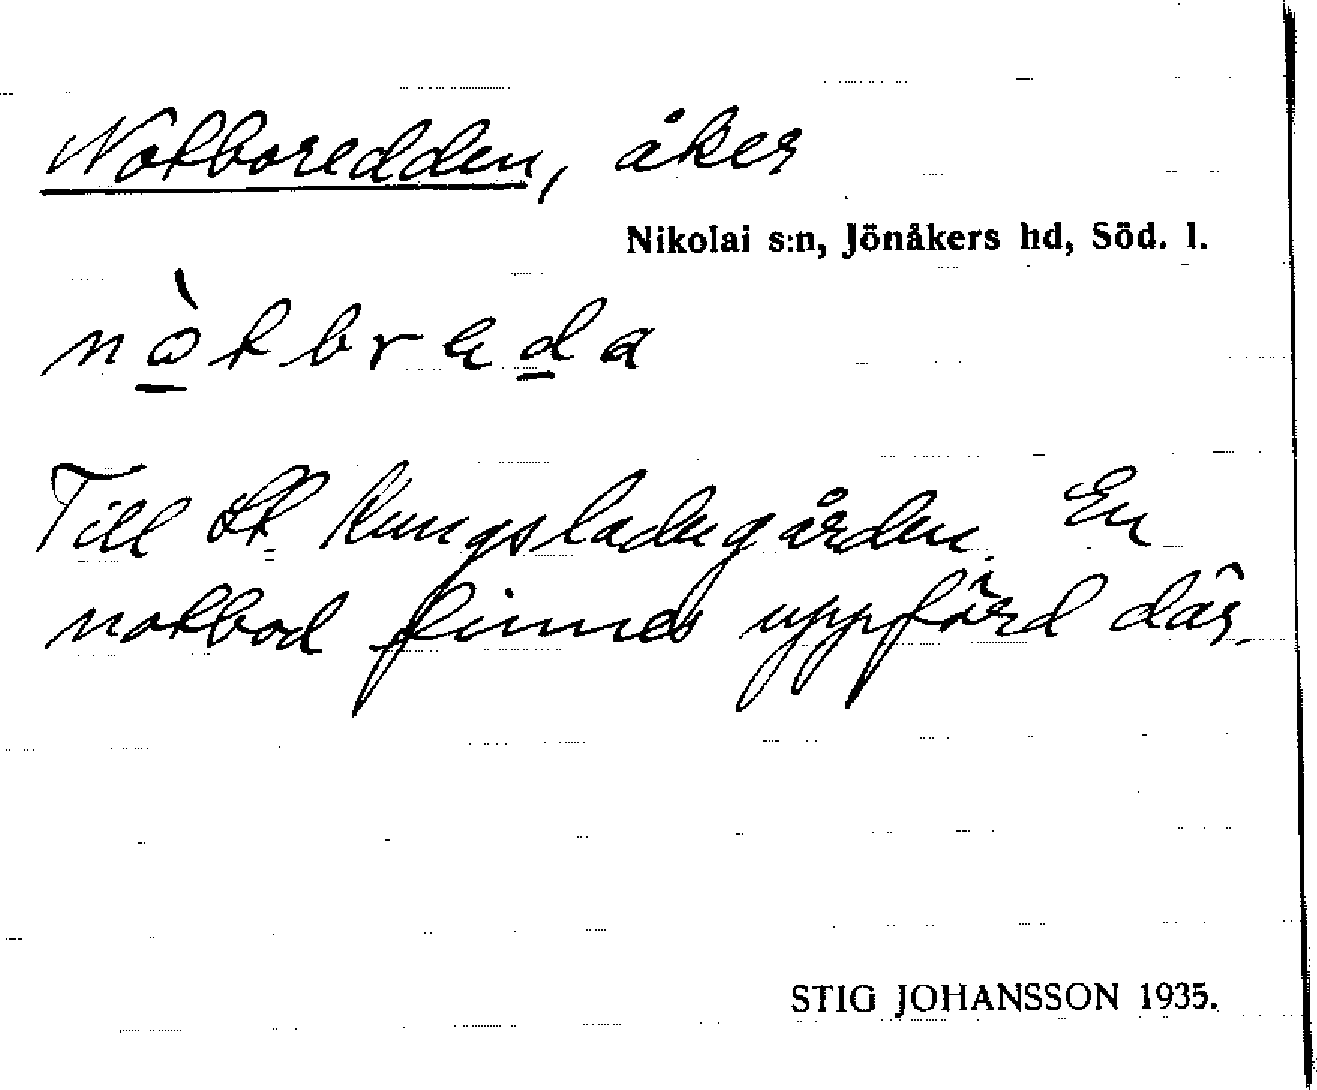 Notboredden, åker
Nikolai s:n, Jönåkers hd, Söd. l.
Till St Kungsladugården. En
notbod finnes uppförd där.
STIG JOHANSSON 1935.